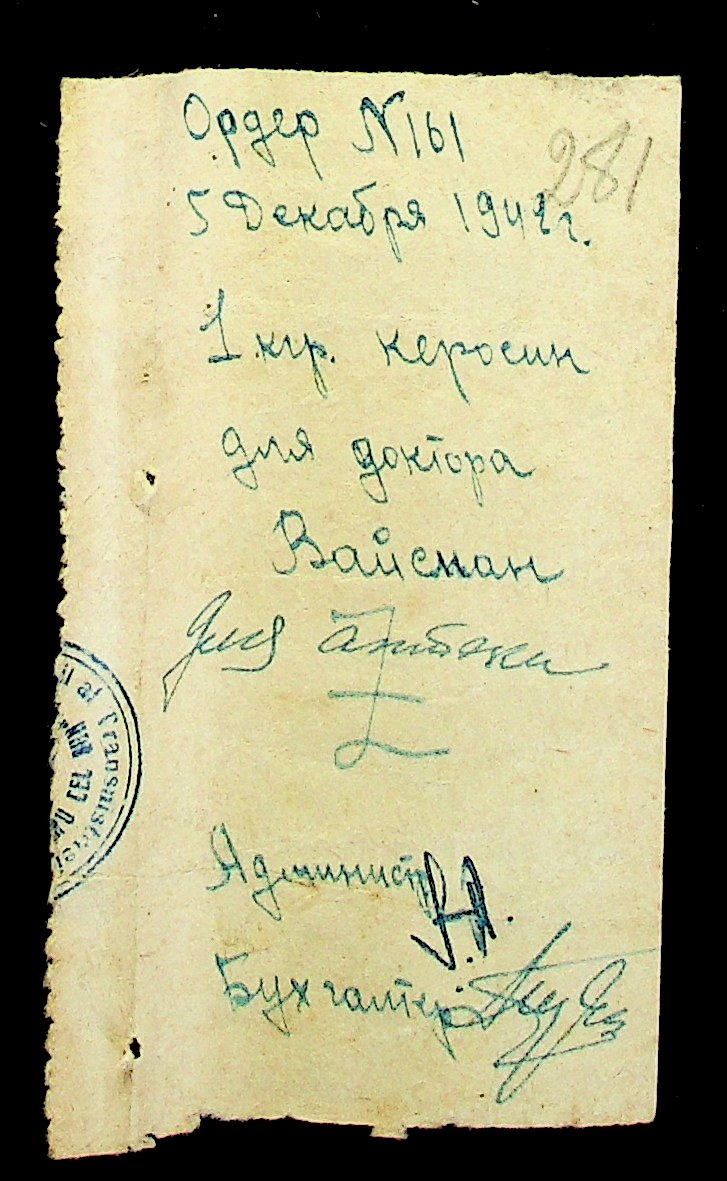 Ордер N 161
281
5 Декабря 1942 г.
1 кгр. керосин
для доктора
Вайсман
для аптеки
Админист
Бухгалтер
Transnistriei